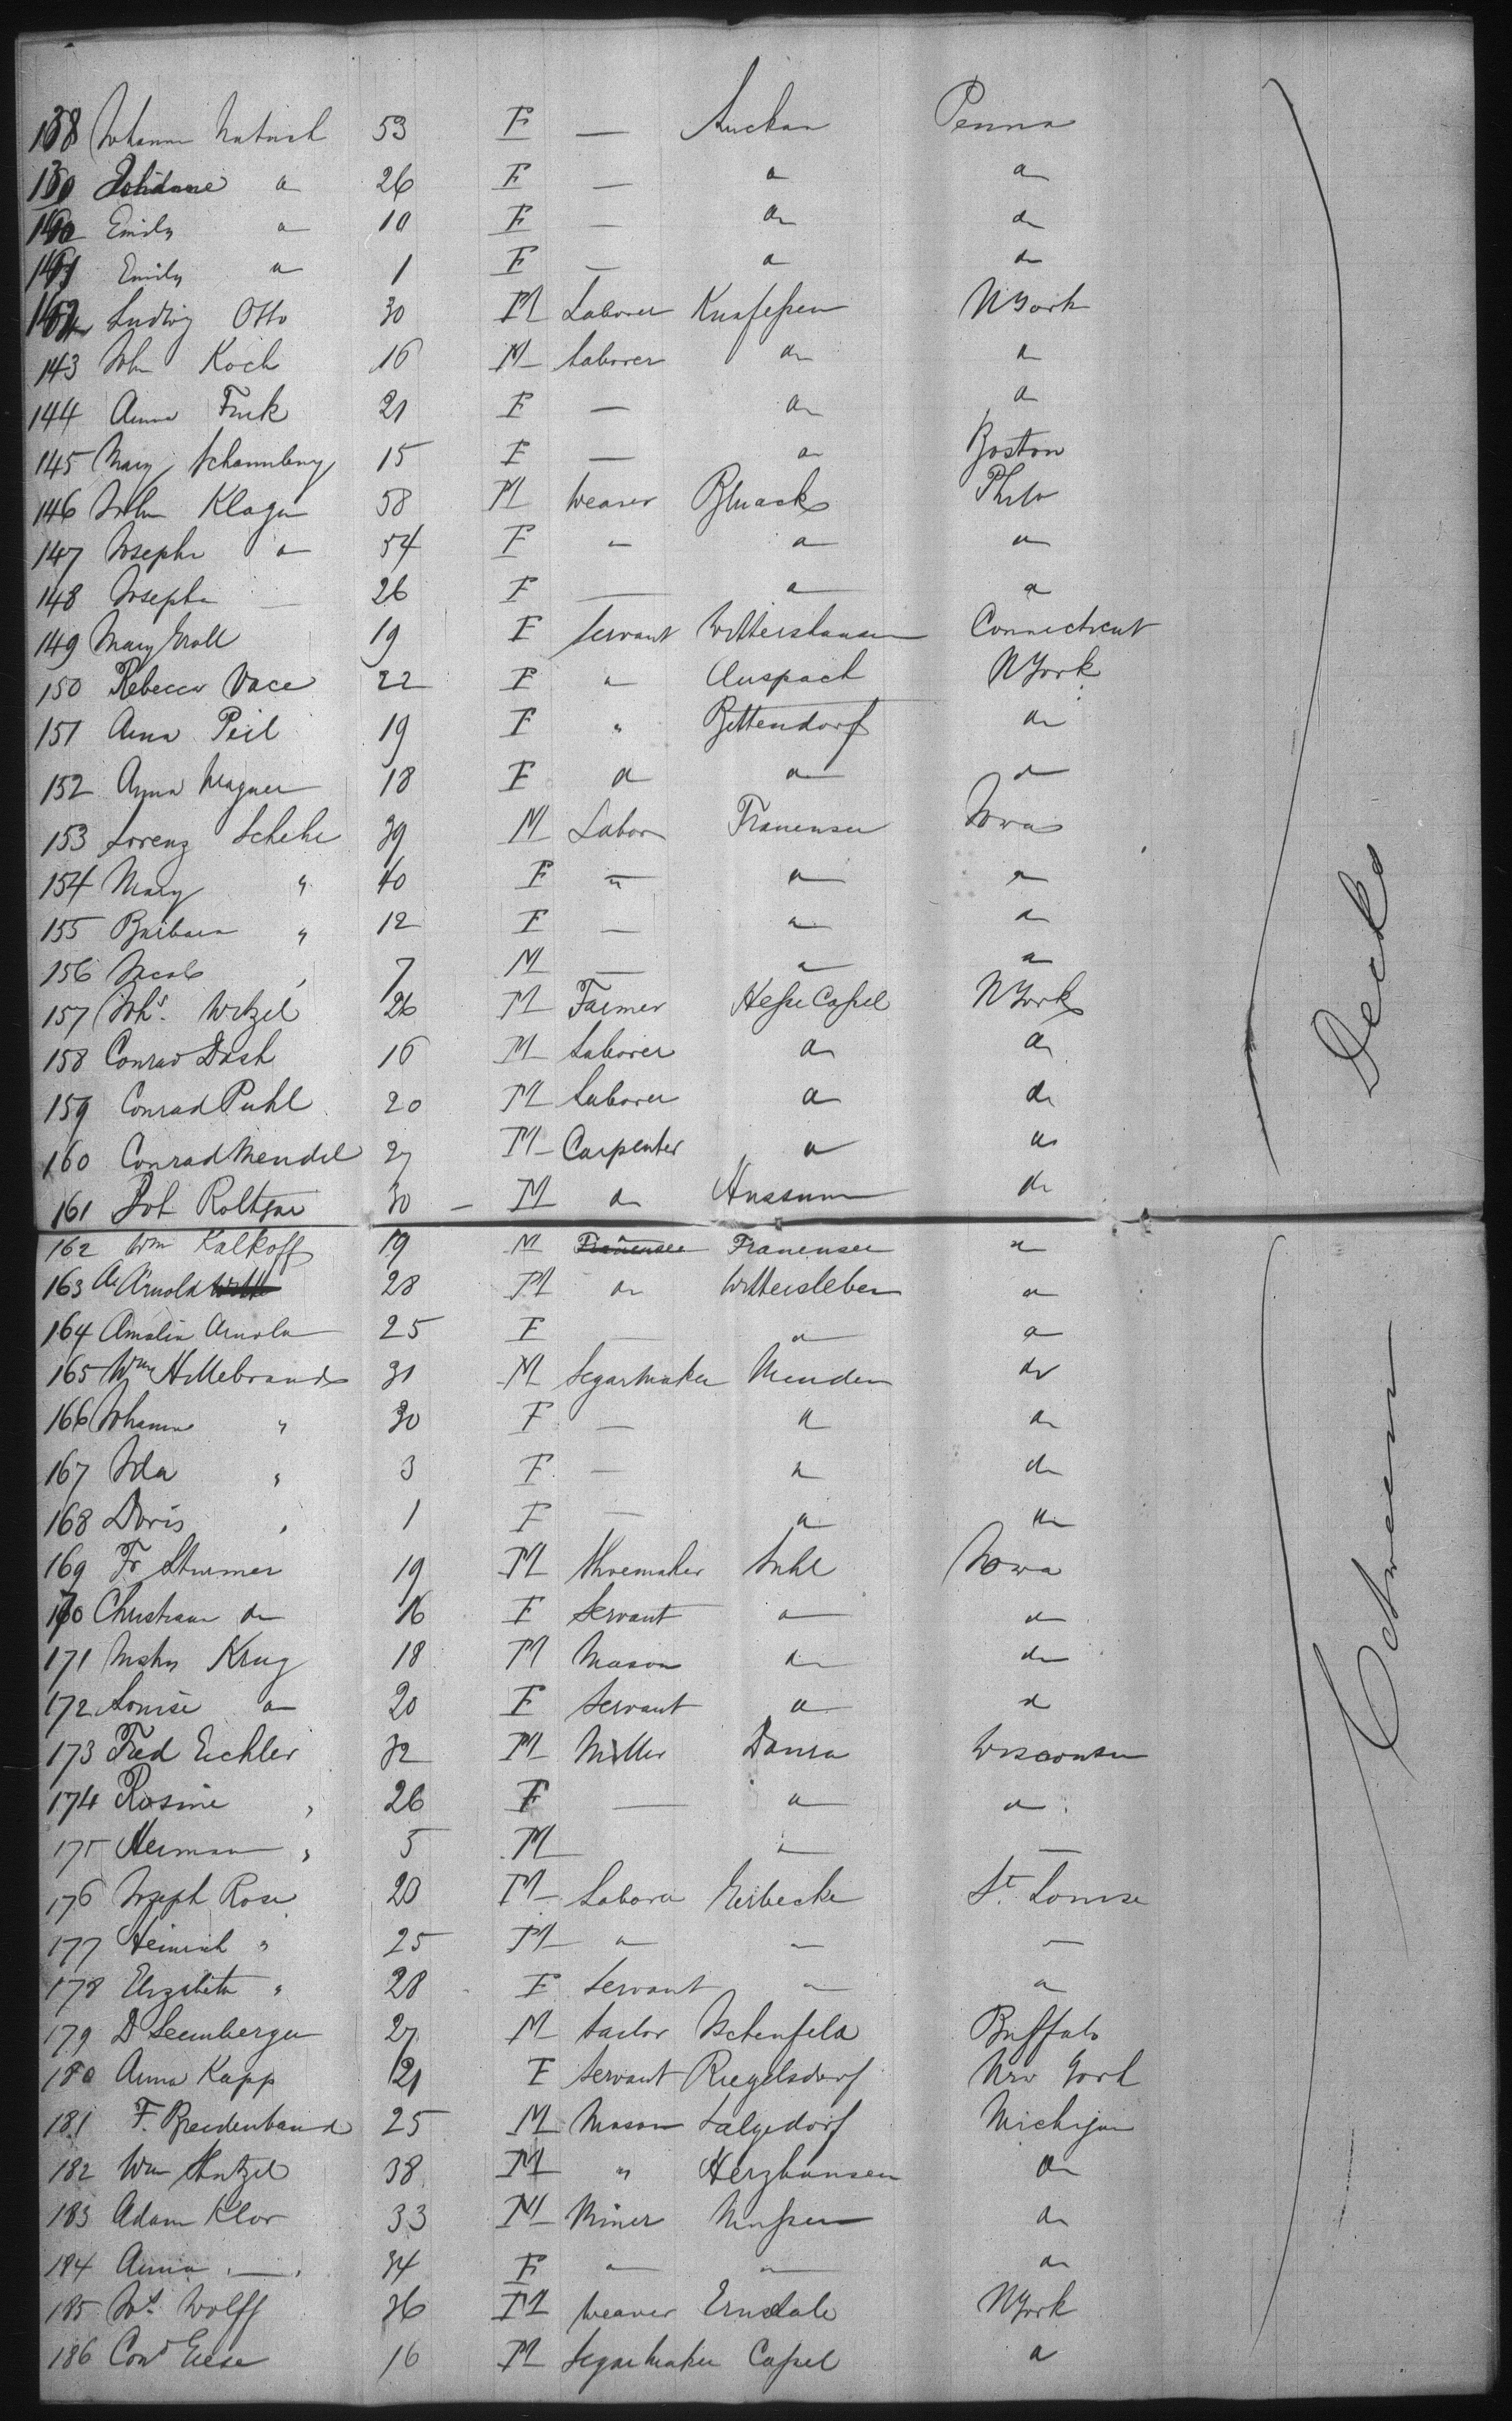 138 Johanne Natusch 53 F — Auckan Penna
139 26 F — a a
140 Emily a 10 F — a do
141 Emily a 1 F — a do
142 Ludwig Otto 30 M Laborer N York
143 Joh Koch 16 M Laborer do a
144 Anna Funk 21 F — do a
145 Mary Schaumburg 15 F — a Boston
146 John Klagen 58 M Weaver Phila
147 Josepha a 54 F " a a
148 Josepha — 26 F — a a
149 Mary Groll 19 F Servant Wittershausen Connecticut
150 Rebecca Vace 22 F " Auspach N York
151 Anna Peil 19 F " Bettendorf do
152 Anna Wagner 18 F a a do
153 Lorenz Schehr 39 M Labor Frauensee Iowa
154 Mary " 40 F " a a
155 Barbara " 12 F — a a
156 Jacob , 7 M — a a
157 Johs. Wetzel 26 M Farmer Hesse Cassel N York
158 Conrad Dash 16 M Laborer a do
159 Conrad Puhl 20 M Laborer a do
160 Conrad Mendel 27 M Carpenter a do
161 Joh 30 – M do Hussum do
162 Wm Kalkoff 19 M Frauensee Frauensee a
163 Arnold 28 M do Wittersleben a
164 Amalia Arnold 25 F — a a
165 Wm Hillebrand 31 M Segarmaker Minden do
166 Johanna " 30 F — a do
167 Ida " 3 F — a do
168 Doris , 1 F — a do
169 Fr Sturmer 19 M Shoemaker Suhl Iowa
170 Christian do 16 F Servant a do
171 Krug 18 M Mason do do
172 Louise a 20 F Servant a d
173 Fred Eichler 32 M Miller Wisconsin
174 Rosine , 26 F — a a
175 Herman , 5 M a —
176 Joseph Rose 23 M Labora St. Louise
177 Heinrich " 25 M a — —
178 Elizabeth " 28 F Servant — a
179 D 27 M Tailor Buffalo
180 Anna Kapp 21 F Servant Riegelsdorf New York
181 F. Breidenband 25 M Mason Salgedorf Michigan
182 Wm 38 M " Herzhausen do
183 Adam Klor 33 M Miner do
184 Anna — 34 F a — do
185 Wolff 36 M Weaver N York
186 Cond Eese 16 M Segarmaker Cassel a
Deck